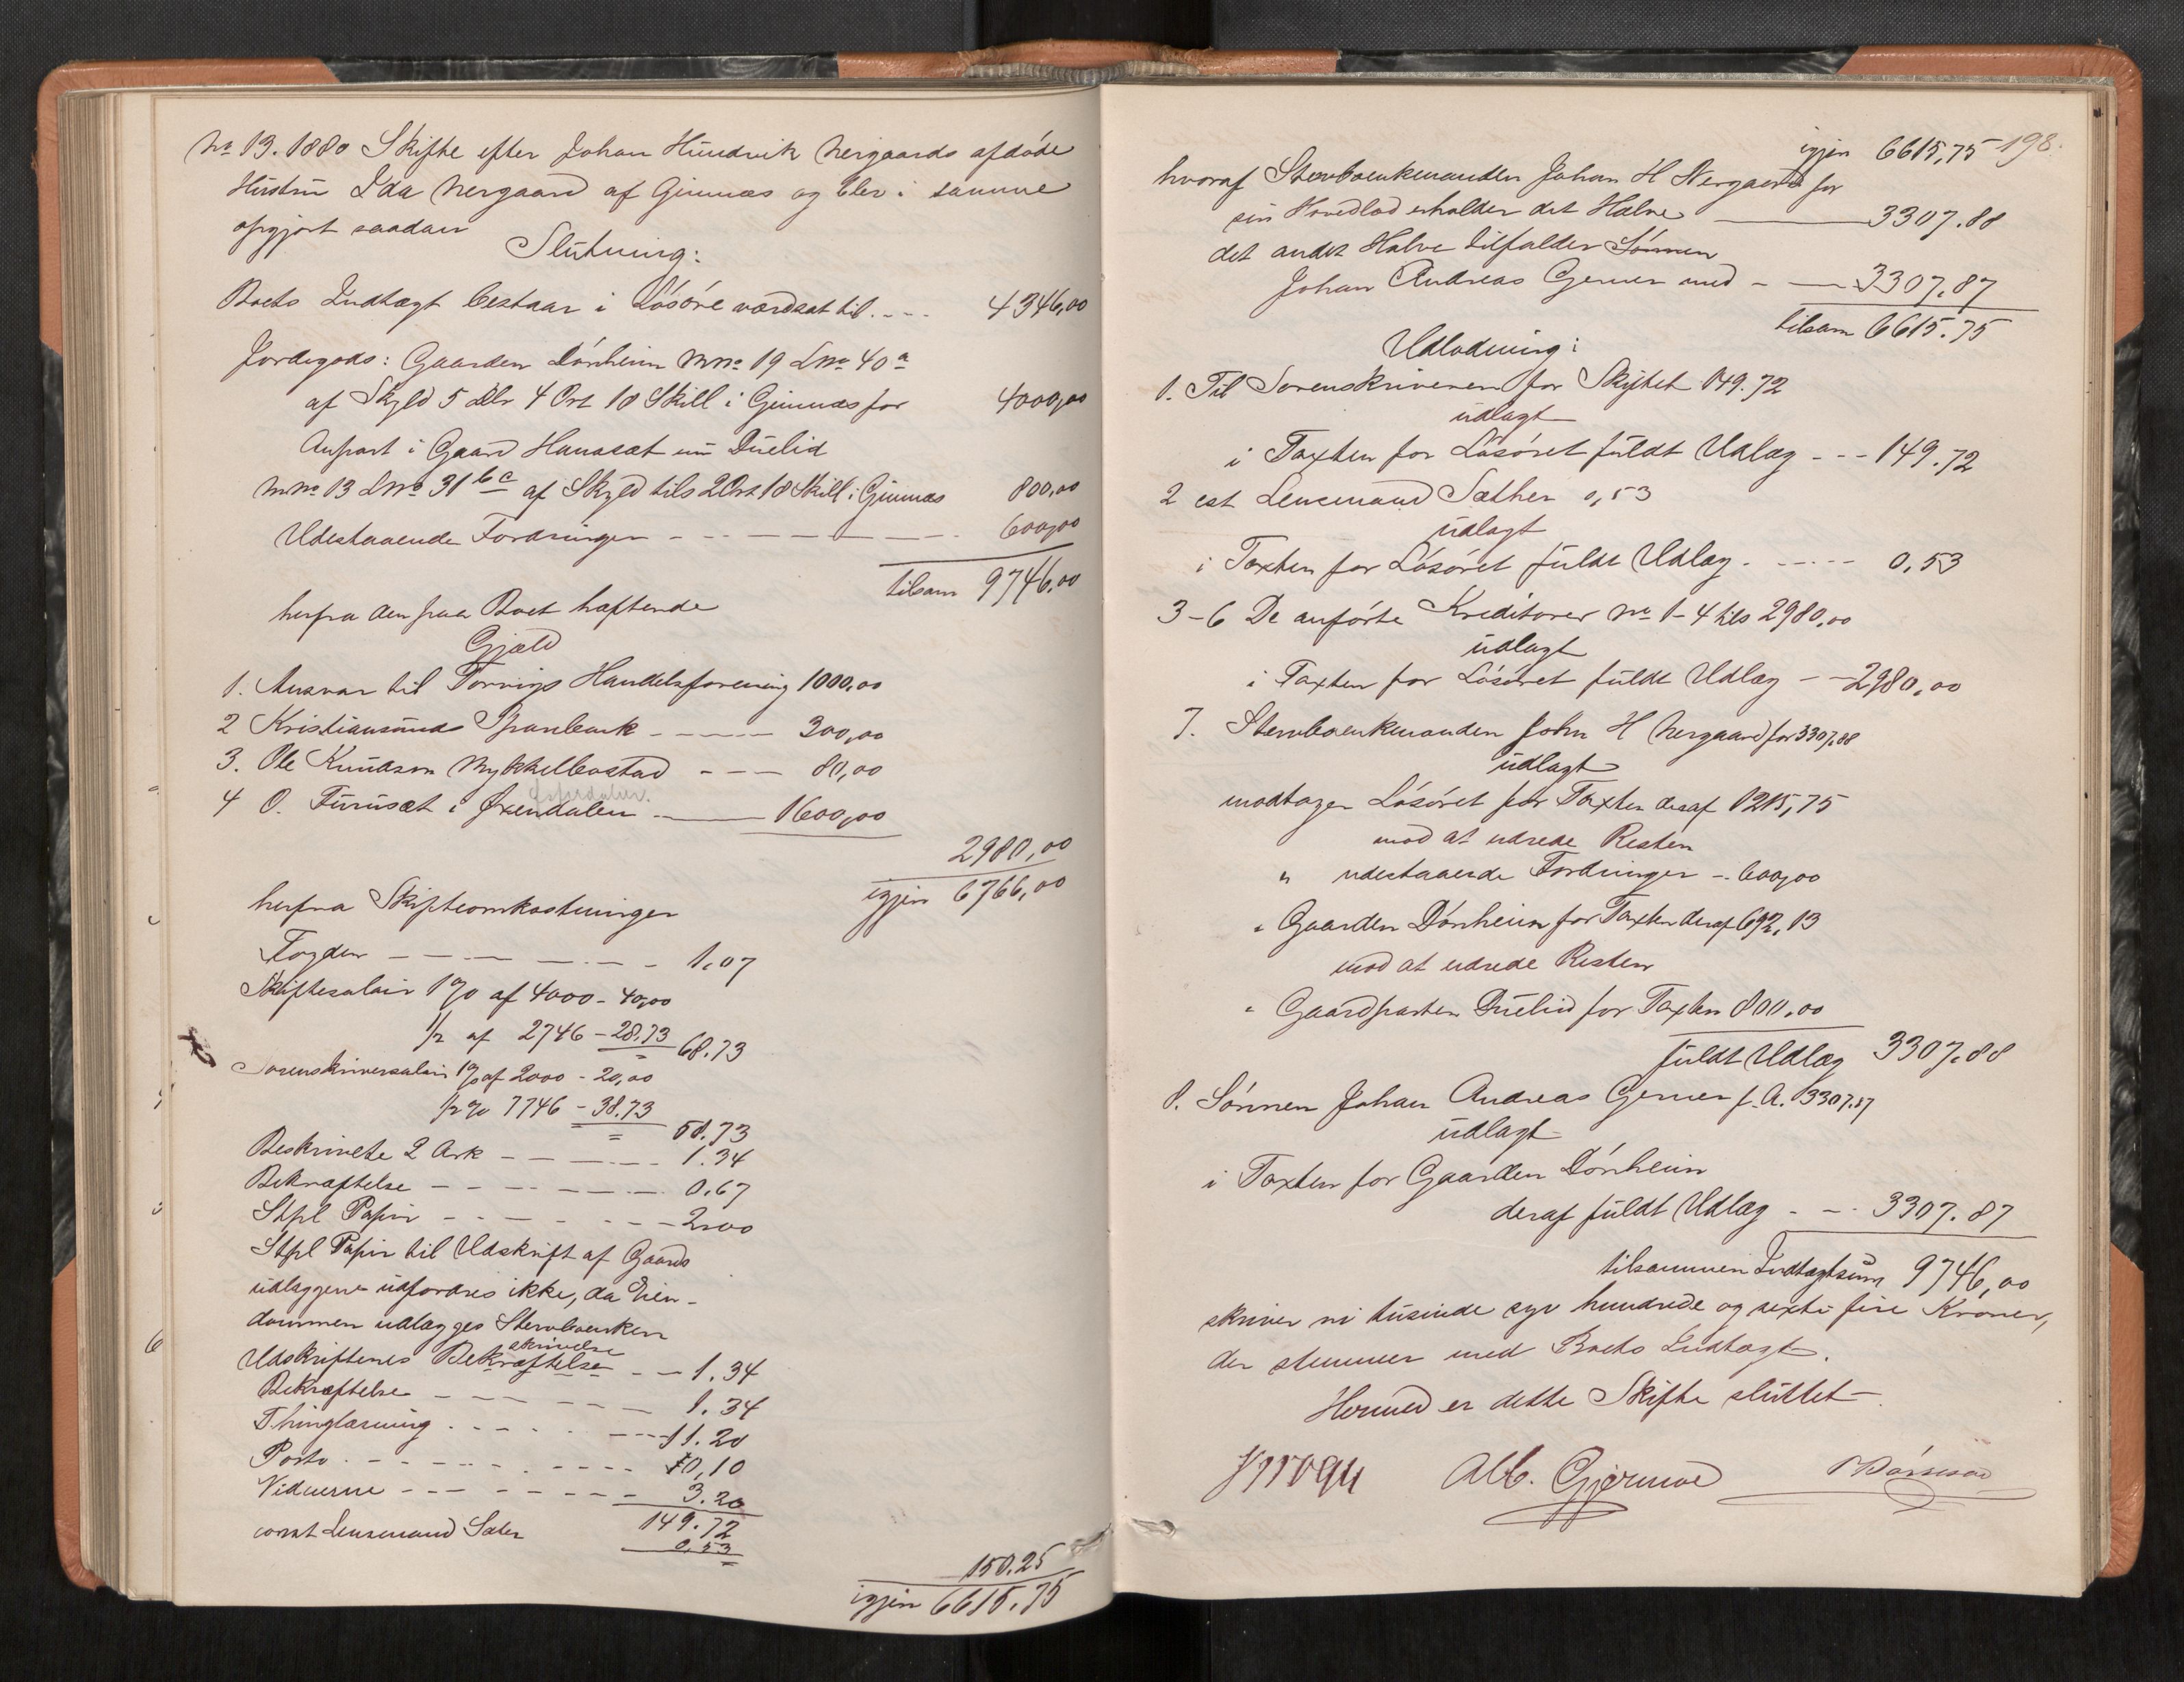 No 13. 1880 Skifte efter Johan Hundvik Nergaards afdøde
Hustru Ida Nergaard af Gimnæs og blev i samme
opgjort saadan
Slutning:
Boets Indtægt bestaar i Løsøre værdsat til .--- 4346,00
Jordegods: Gaarden Dønheim Mno 19 Lno 40 a
af Skyld 5 Dlr 4 Ort 10 Skill i Gimnæs for 4000,00
Anpart i Gaard Hanasæt Duelid
Mno 13 Lno 31 bc af Skyld tils 2 Ort 18 Skill i Gimnæs 800,00
Udestaaende Fordringer - - - - - - 600,00
tilsam 9746,00
herfra den paa Boet hæftende
Gjæld
1. Ansvar til Torvigs Handelsforening 1000,00
2 Kristiansunds Sparebank - - - - 300,00
3. Ole Knudsen Mykkelbostad - - - 80,00
4 O. Furusæt i Øxendalen - 1600,00
2980,00
igjen 6766,00
herfra Skifteomkostninger
Fogden - - - - - - 1,07
Skiftesalair 1 % af 4000 - 40,00
1/2 af 2746 - 28.73 68.73
Sorenskriversalair 1 % af 2000 - 20,00
1/2 % 7746 - 38.73
= 58.73
Beskrivelse 2 Ark - - - - - 1.34
Bekræftelse - - - - - - 0.67
Stpl Papir - - - - - - 2,00
Stpl Papir til Udskrift af Gaards
udlæggene udfordres ikke, da Eien-
dommen udlægges Stervboenken
skrivelse
Udskriftenes Bekræftelse - - 1.34
Bekræftelse - - - - - 1.34
Thinglæsning . - - - - - 11.20
Porto . - - - - - - - 0,10
Vidnerne - - - - - - - 3.20
149.72
const Lensmand Sæter 0,53
150.25
igjen 6615.75
198.
igjen 6615,75
hvoraf Stervboenkemanden Johan H Nergaard for
sin Hovedlod erholder det Halve 3307.88
det andet Halve tilfalder Sønnen
Johan Andreas Gerner med - - 3307.87
tilsam 6615.75
Udlodning:
1. Til Sorenskriveren for Skiftet 149.72
udlagt
i Taxten for Løsøret fuldt Udlæg - - - 149.72
2 cst Lensmand Sæther 0,53
udlagt
i Taxten for Løsøret fuldt Udlæg . - - - - 0,53
3-6 De anførte Kreditorer No 1-4 tils 2980,00
udlagt
i Taxten for Løsøret fuldt Udlæg - - 2980,00
7. Stervboenkemanden John H Nergaard for 3307.88
udlagt
modtager Løsøret for Taxten deraf 1215,75
mod at udrede Resten
" udestaaende Fordringer - 600,00
" Gaarden Dønheim for Taxten deraf 692,13
mod at udrede Resten
" Gaardparten Duelid for Taxten 800,00
fuldt Udlæg 3307.88
8. Sønnen Johan Andreas Gerner f. A. 3307.87
udlagt
i Taxten for Gaarden Dønheim
deraf fuldt Udlæg - - 3307.87
tilsammen Indtægtsum 9746,00
skriver ni tusinde syv hundrede og sexti fire Kroner,
der stemmer med Boets Indtægt.
Hermed er dette Skifte sluttet.
Alb. Gjørmoe